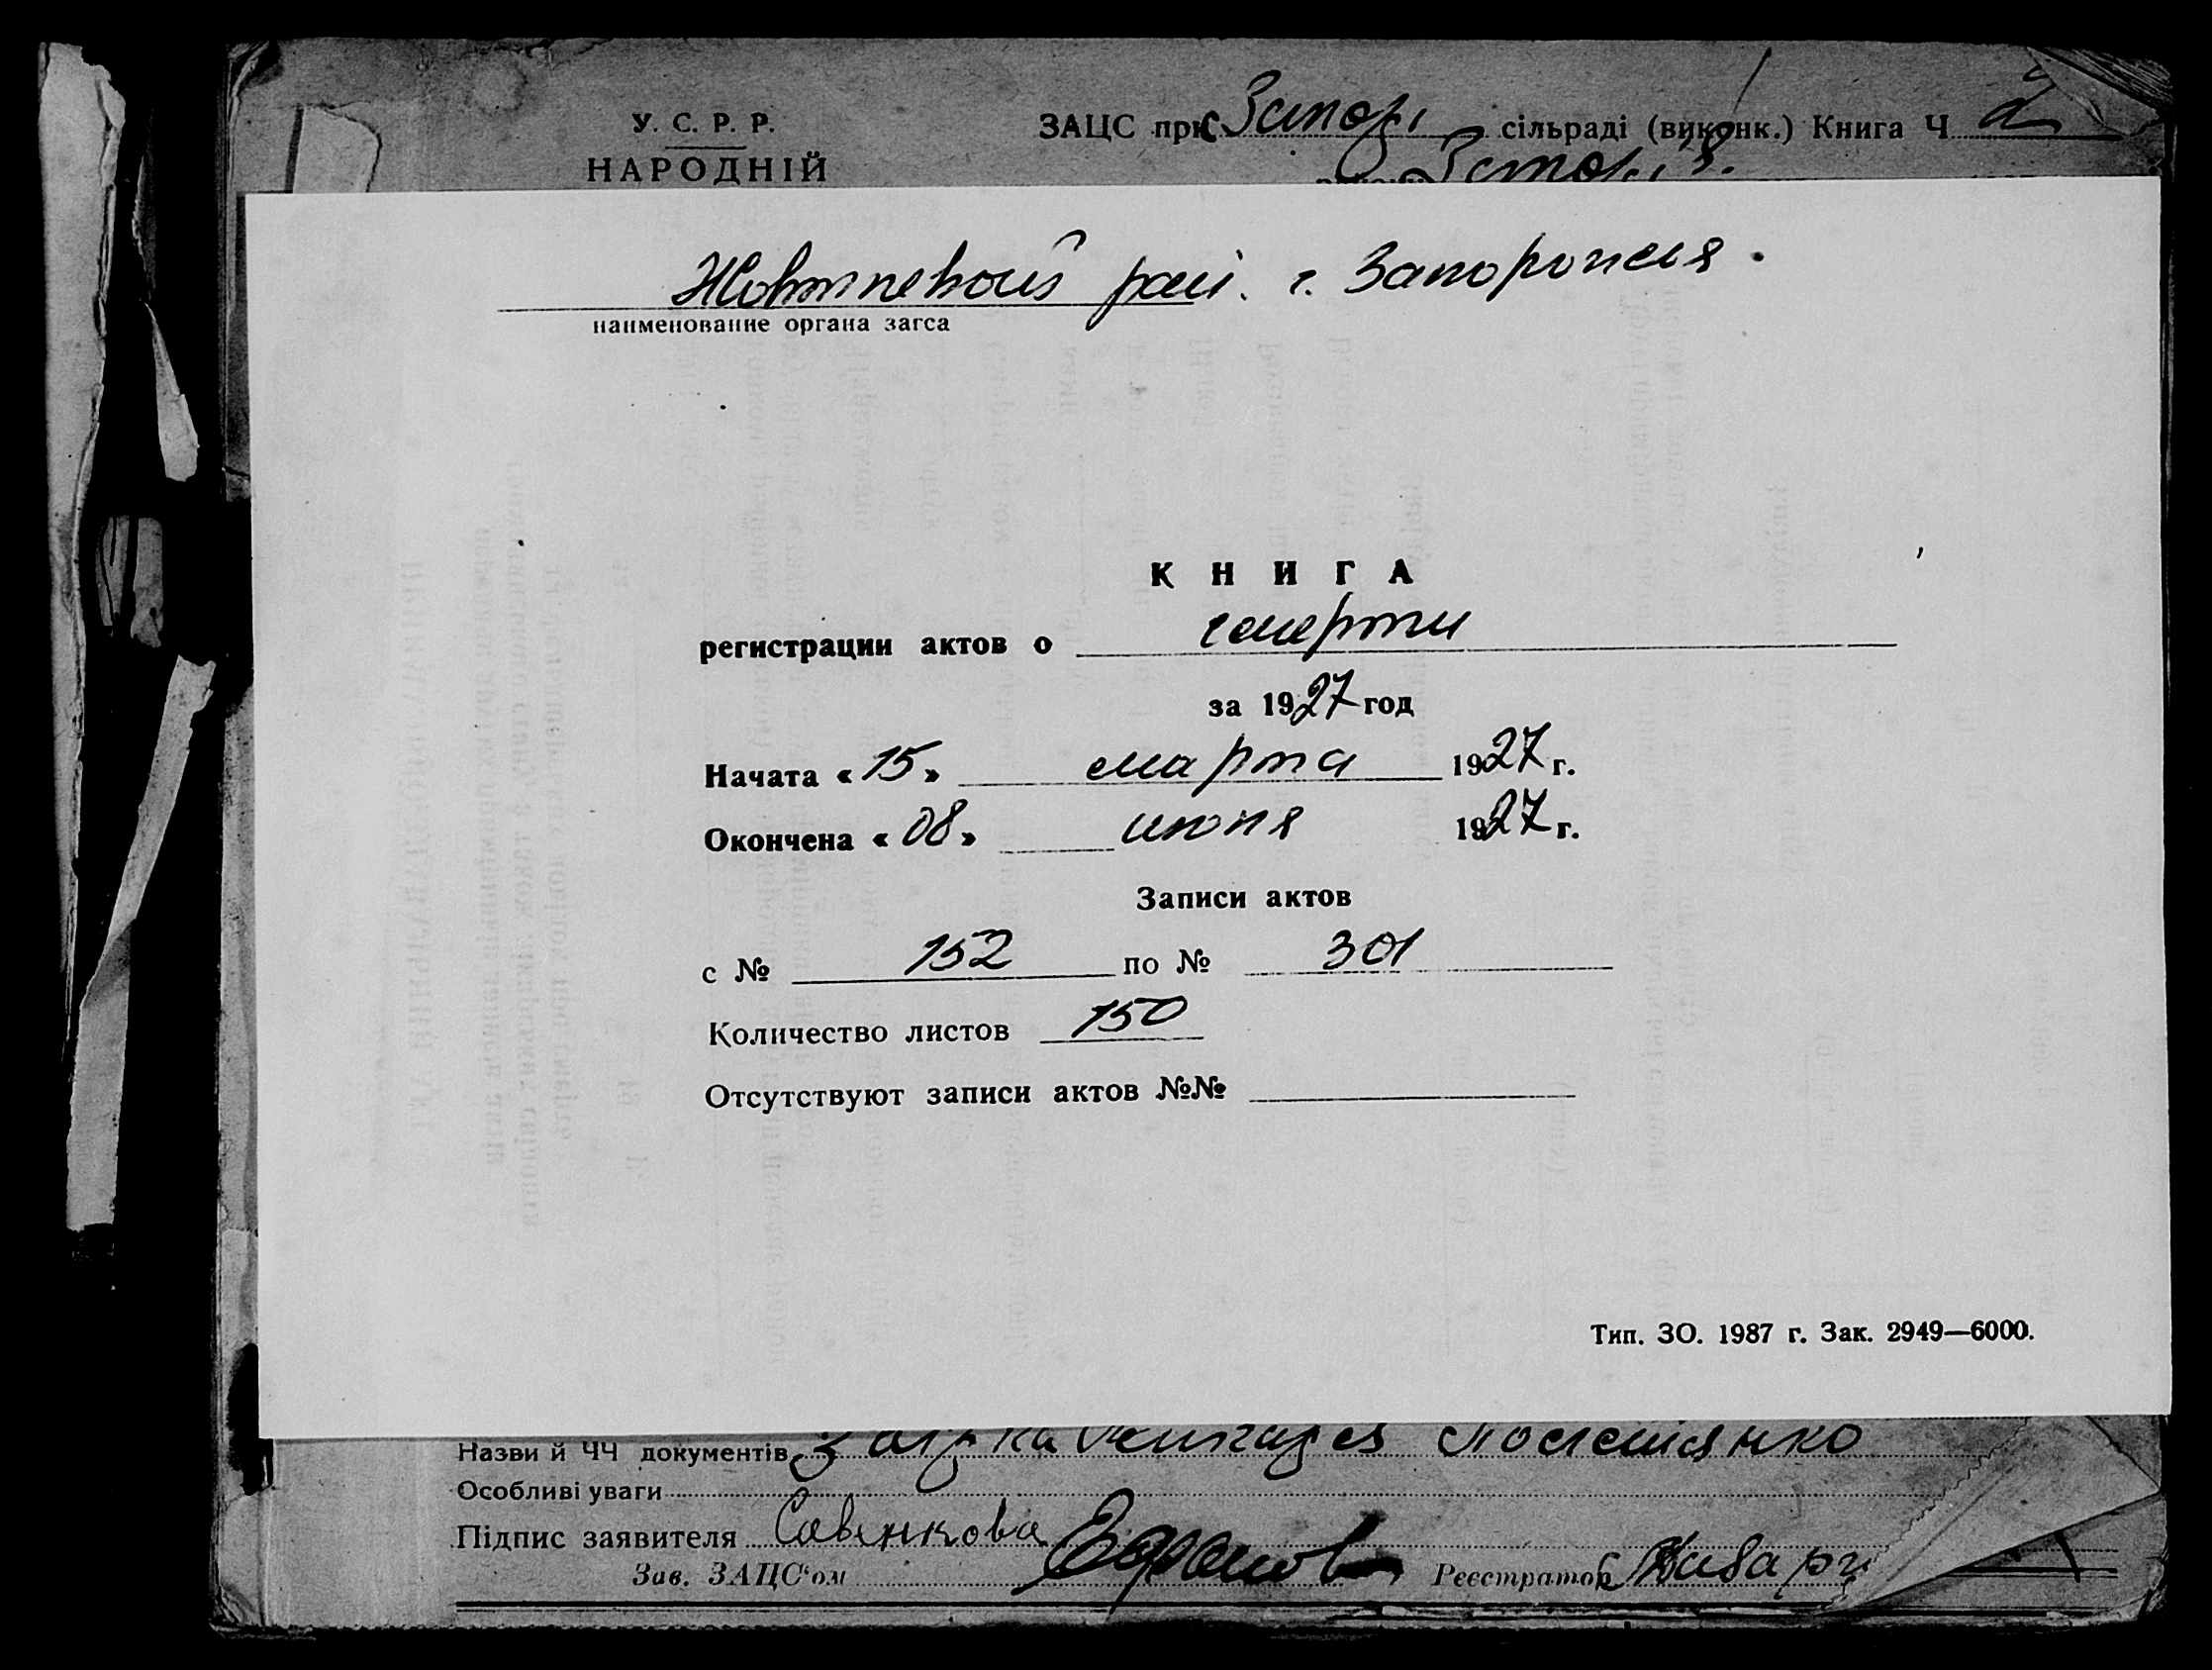 У. С. Р. Р.
НАРОДНІЙ
ЗАЦС при Запорі сільраді (виконк.) Книга Ч 2
Жовтневый рай. г. Запорожья.
наименование органа загса
КНИГА
регистрации актов о смерти
за 1927 год
Начата «15» марта 1927 г.
Окончена «08» июня 1927 г.
Записи актов
с № 152 по № 301
Количество листов 150
Отсутствуют записи актов №№
Тип. ЗО. 1987 г. Зак. 2949—6000.
Назви й ЧЧ документів
Особливі уваги
Підпис заявителя Савенкова
Зав. ЗАЦС'ом Реєстратор